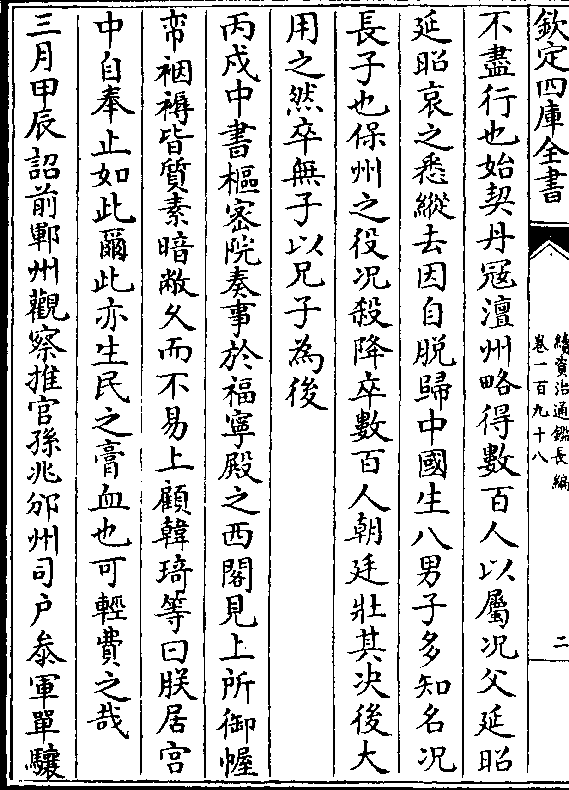 欽定四庫全書
續資治通鑑長編
卷一百九十八
二
不盡行也始契丹冦澶州略得數百人以屬况父延昭
延昭哀之悉縱去因自脱歸中國生八男子多知名况
長子也保州之役况殺降卒數百人朝廷壯其决後大
用之然卒無子以兄子為後
丙戍中書樞宻院奏事於福寧殿之西閣見上所御幄
帟裀褥皆質素暗敝久而不易上顧韓琦等曰朕居宫
中自奉止如此爾此亦生民之膏血也可輕費之哉
三月甲辰詔前鄆州觀察推官孫兆邠州司户叅軍單驤